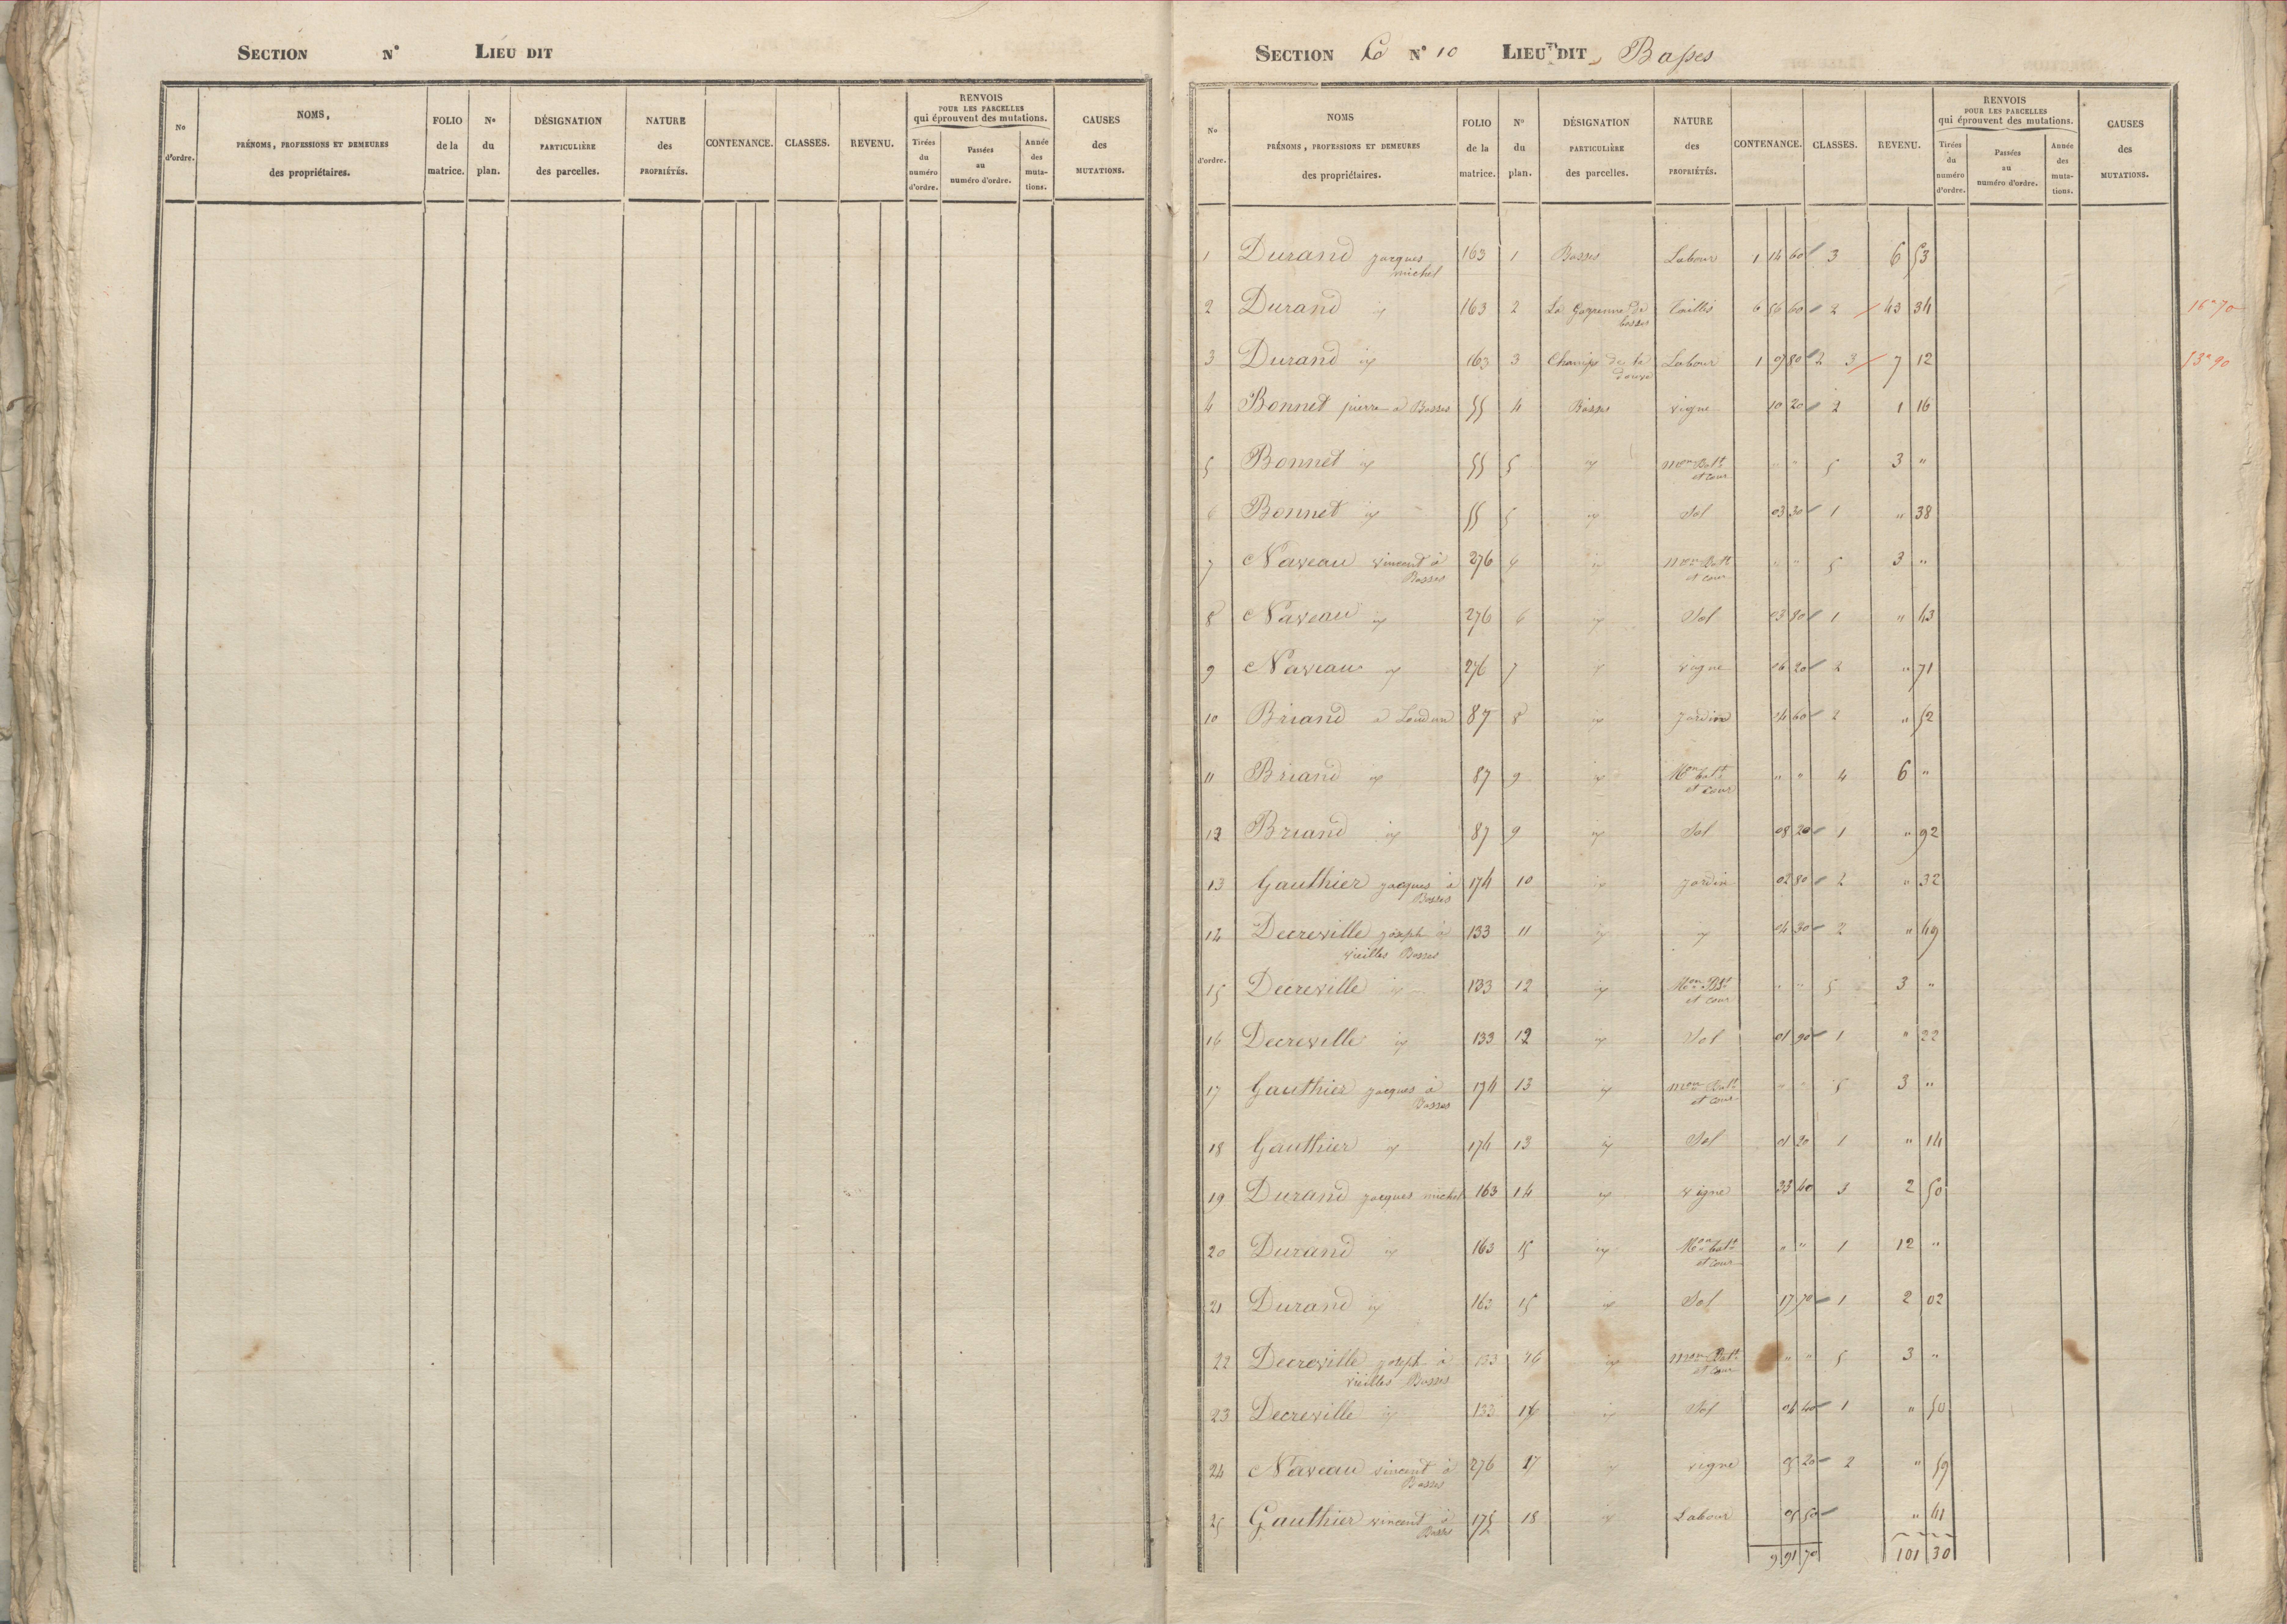 SECTION N° LIEU DIT
No d'ordre. NOMS, PRÉNOMS, PROFESSIONS ET DEMEURES des propriétaires. FOLIO de la matrice. No du plan. DÉSIGNATION PARTICULIÈRE des parcelles. NATURE des PROPRIÉTÉS. CONTENANCE. CLASSES. REVENU. RENVOIS POUR LES PARCELLES qui éprouvent des mutations. Tirées du numéro d'ordre. Passées au numéro d'ordre. Année des mutations. CAUSES des MUTATIONS.
SECTION C N° 10 LIEU DIT Basses
No d'ordre. NOMS PRÉNOMS, PROFESSIONS ET DEMEURES des propriétaires. FOLIO de la matrice. No du plan. DÉSIGNATION PARTICULIÈRE des parcelles. NATURE des PROPRIÉTÉS. CONTENANCE. CLASSES. REVENU. RENVOIS POUR LES PARCELLES qui éprouvent des mutations. Tirées du numéro d'ordre. Passées au numéro d'ordre. Année des mutations. CAUSES des MUTATIONS.
1 Durand jacques michel 163 1 Basses Labour 1 14 60 3 6 53
2 Durand id 163 2 La Garenne de basses taillis 6 56 60 2 43 34 16a 70
3 Durand id 163 3 Champ de la Labour 1 07 80 2 3 7 12 53a 90
4 Bonnet pierre à Basses 55 4 Basses vigne 10 20 2 1 16
5 Bonnet id 55 5 id mon Batt et cour " " 5 3 "
6 Bonnet id 55 5 id Sol 03 30 1 " 38
7 Naveau vincent à Basses 276 6 id mon Batt et cour " " 5 3 "
8 Naveau id 276 6 id Sol 03 80 1 " 43
9 Naveau id 276 7 id vigne 20 2 " 71
10 Briand à Loudun 87 8 id jardin 04 60 2 " 52
11 Briand id 87 9 id Mon batt et cour " " 4 6 "
12 Briand id 87 9 id Sol 08 20 1 " 92
13 Gauthier jacques à Basses 174 10 id jardin 02 80 2 " 32
14 Decreville joseph à vieilles Basses 133 11 id id 04 30 2 " 49
15 Decreville id 133 12 id Mon Batt et cour " " 5 3 "
16 Decreville id 133 12 id Sol 01 90 1 " 22
17 Gauthier jacques à Basses 174 13 id mon Batt et cour " " 5 3 "
18 Gauthier id 174 13 id Sol 01 20 1 " 14
19 Durand jacques michel 163 14 id vigne 33 40 3 2 50
20 Durand id 163 15 id Mon batt et cour " " 1 12 "
21 Durand id 163 15 id Sol 17 70 1 2 02
22 Decreville joseph à vieilles Basses 133 16 id mon Batt et cour " " 5 3 "
23 Decreville id 133 16 id Sol 04 40 1 " 50
24 Naveau vincent à Basses 276 17 id vigne 05 20 2 " 59
25 Gauthier vincent à Basses 175 18 id Labour 05 50 " 41
9 91 70 101 30